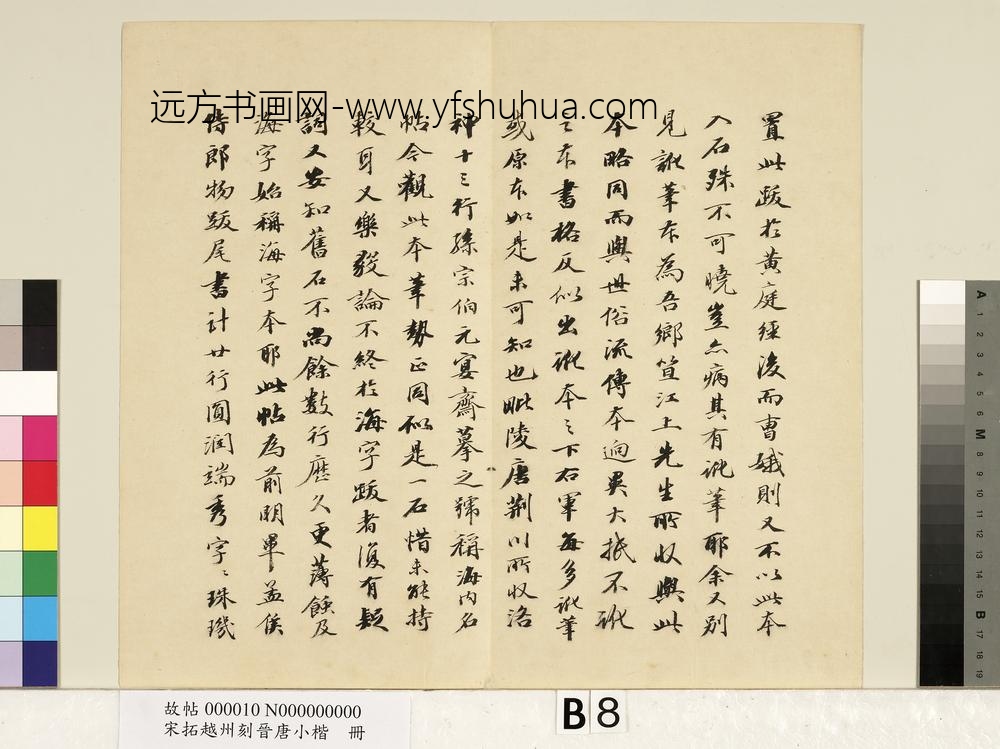 远方书画网-www.yfshuhua.com
置此跋於黄庭經後而曹娥則又不以此本
入石殊不可曉豈亦病其有訛筆耶余又別
見訛筆本為吾鄉笪江上先生所收與此
本略同而與世俗流傳本迥異大抵不訛
之本書格反似出訛本之下右軍每多訛筆
或原本如是未可知也毗陵唐荆川所收洛
神十三行孫宗伯元宴齋摹之號稱海内名
帖今觀此本筆勢正同似是一石惜未能持
較耳又樂毅論不終於海字跋者復有疑
詞又安知舊石不尚餘數行歷久更薄蝕及
海字始稱海字本耶此帖為前明畢孟侯
侍郎物跋尾書計廿行圓潤端秀字〻珠璣
故帖 000010 N000000000
宋拓越州刻晉唐小楷 冊
B 8
A 1 2 3 4 5 6 M 8 9 10 11 12 13 14 15 B 17 18 19